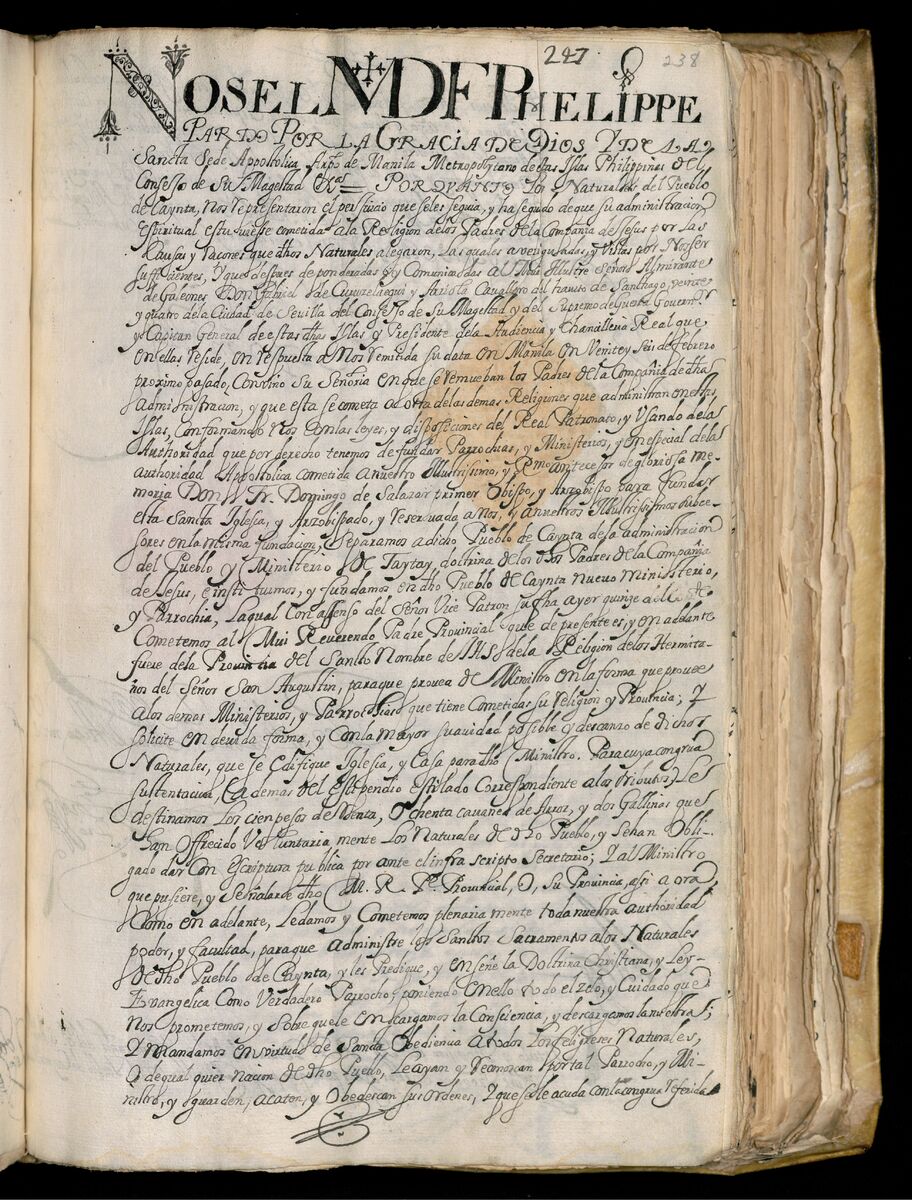 247
238
NOS EL M D F PHELIPPE
PARDO POR LA GRACIA DE DIOS Y DE LA
Sancta Sede Appostolica Arzpo de Manila Metropolitano de estas Islas Philippinas del
Consejo de Su Magestad &as PORQVANTO Los Naturales del Pueblo
de Caynta, Nos representaron el perjuicio que seles seguia, y ha seguido de que su administracion
espiritual estuviesse cometida ala Religion delos Padres dela Compañia de Jesus por las
Kausas y racones que dhos Naturales alegaron, Las quales averiguadas, y vistas por Nos ser
sufficientes, Y que despues de ponderadas, y Comunicadas al Mui Illustre Señor Almirante
de Galeones Don Gabriel de Curuzelaegui y Arriola Cavallero del havito de Santhiago, veinte
y quatro dela Ciudad de Sevilla del Consejo de Su Magestad y del Supremo de guerra Governor
y Capitan General de estas dhas Islas y Presidente dela Audiencia y Chancilleria Real que
en ellas reside, en respuesta a Nos remitida su data en Manila en Veinte y seis de febrero
proximo pasado, Convino Su Señoria en que se remueban los Padres dela Compañia de dha
administracion, y que esta se cometa a otra delas demas Religiones que administran en estas
Islas, Conformandonos con las leyes, y disposiciones del Real Patronato, y Usando dela
Authoridad que por derecho tenemos de fundar Parrochias, y Ministerios, y en especial dela
authoridad Appostolica cometida a nuestro Illustrissimo, y Rmo antecesor de gloriosa me-
moria Don Fr. Domingo de Salazar primer Obispo, y Arzobispo para fundar
esta Sancta Iglesia, y Arzobispado, y reservada a Nos, y a nuestros Illustrissimos subce-
sores en la misma fundacion, Separamos a dicho Pueblo de Caynta dela administracion
del Pueblo y Ministerio de Taytay, doctrina delos dhos Padres dela Compañia
de Jesus, e instituimos, y fundamos en dho Pueblo de Caynta nuevo ministerio,
y Parrochia, Laqual con assenso del Señor Vice Patron su fha ayer quinze
Cometemos al Mui Reverendo Padre Provincial que de presente es, y en adelante
fuere dela Provincia del Sancto Nombre de IHS dela Religion delos Hermita-
ños del Señor San Augustin, para que provea de Ministro en la forma que provee
alos demas Ministerios, y Parrochias que tiene cometidas su religion y Provincia; Y
solicite en devida forma, y con la mayor suavidad posible y descanzo de dichos
Naturales, que se edifique Iglesia, y Casa para dho Ministro. Para cuya congrua
sustentacion, (ademas del Estipendio estilado Correspondiente alos tributos) Le
destinamos Los cien pesos de Renta, Ochenta cavanes de Arroz, y dos Gallinas que
han Offrecido Voluntaria mente Los Naturales de dho Pueblo, y se han Obli-
gado dar con Escriptura publica por ante el infra scripto Secretario; Y al Ministro
que pusiere, y señalare dho M. R. Pe. Provincial, O, Su Provincia, assi a ora,
Como en adelante, Le damos y Cometemos plenaria mente toda nuestra authoridad
poder, y facultad, para que administre los Santos Sacramentos alos Naturales
de dho Pueblo de Caynta, y les Predique, y enseñe la Doctrina Christiana, y Ley
Evangelica Como Verdadero Parrocho, poniendo en ello todo el zelo, y Cuidado que
Nos prometemos, y sobre que le encargamos la Consciencia, y descargamos la nuestra;
Y mandamos en virtud de Sancta Obediencia a todos Los feligreses Naturales,
O de qual quier nacion de dho Pueblo, Le ayan y reconoscan por tal Parrocho, y Mi-
nistro, y guarden, acaten, y Obedescan sus Ordenes, Y que se le acuda con la congrua referida